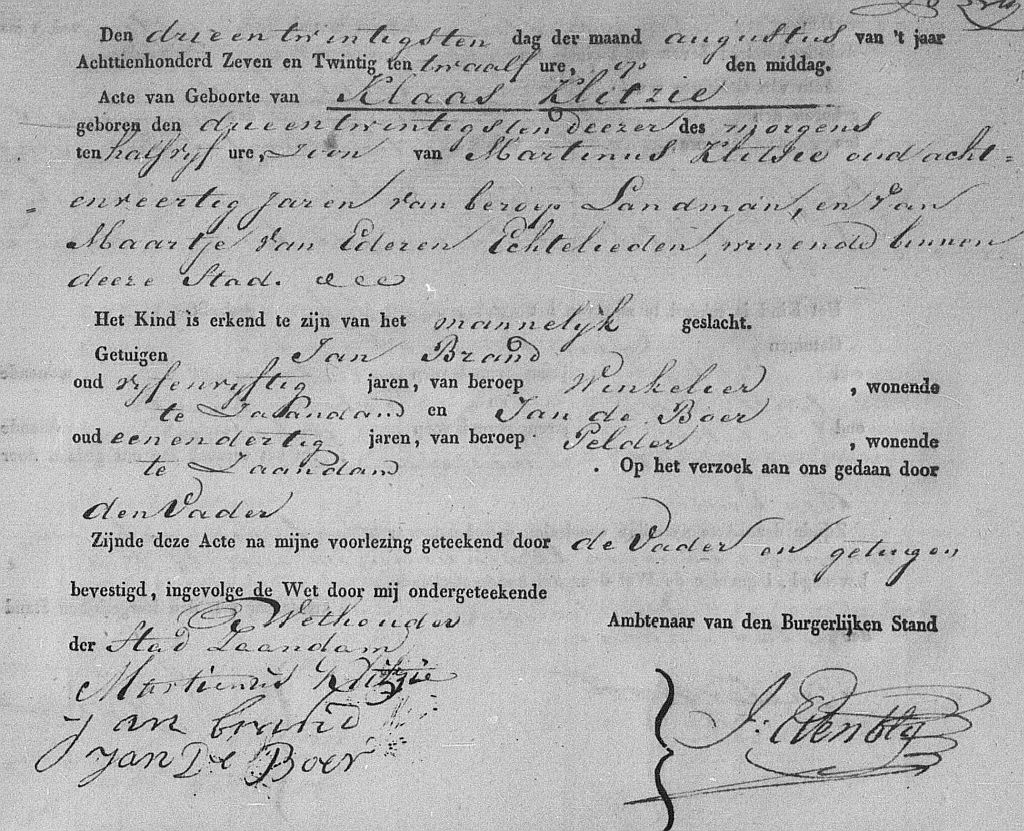 Den drieentwintigsten dag der maand augustus van 't jaar
Achttienhonderd Zeven en Twintig ten twaalf ure, op den middag.
Acte van Geboorte van Klaas Klitzie
geboren den drieentwintigsten deezer des morgens
ten halfvyf ure, Zoon van Martinus Klitsie oud acht-
enveertig jaren van beroep Landman, en van
Maartje van Ederen Echtelieden, wonende binnen
deeze Stad.
Het Kind is erkend te zijn van het mannelyk geslacht.
Getuigen Jan Brand
oud vyfenvyftig jaren, van beroep Winkelier, wonende
te Zaandam en Jan de Boer
oud eenendertig jaren, van beroep Pelder, wonende
te Zaandam. Op het verzoek aan ons gedaan door
den Vader
Zijnde deze Acte na mijne voorlezing geteekend door de Vader en getuigen
bevestigd, ingevolge de Wet door mij ondergeteekende
De Wethouder
der Stad Zaandam Ambtenaar van den Burgerlijken Stand
Martienus Klitzie
Jan brand
Jan De Boer